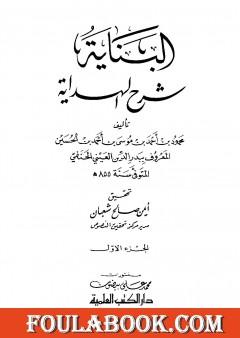 البناية
شرح الهداية
تأليف
محمود بن أحمد بن موسى بن أحمد بن الحسين
المعروف ببدر الدين العيني الحنفي
المتوفى سنة ٨٥٥ هـ
تحقيق
أيمن صالح شعبان
الجزء الأول
منشورات
محمد علي بيضون
دار الكتب العلمية
FOULABOOK.COM